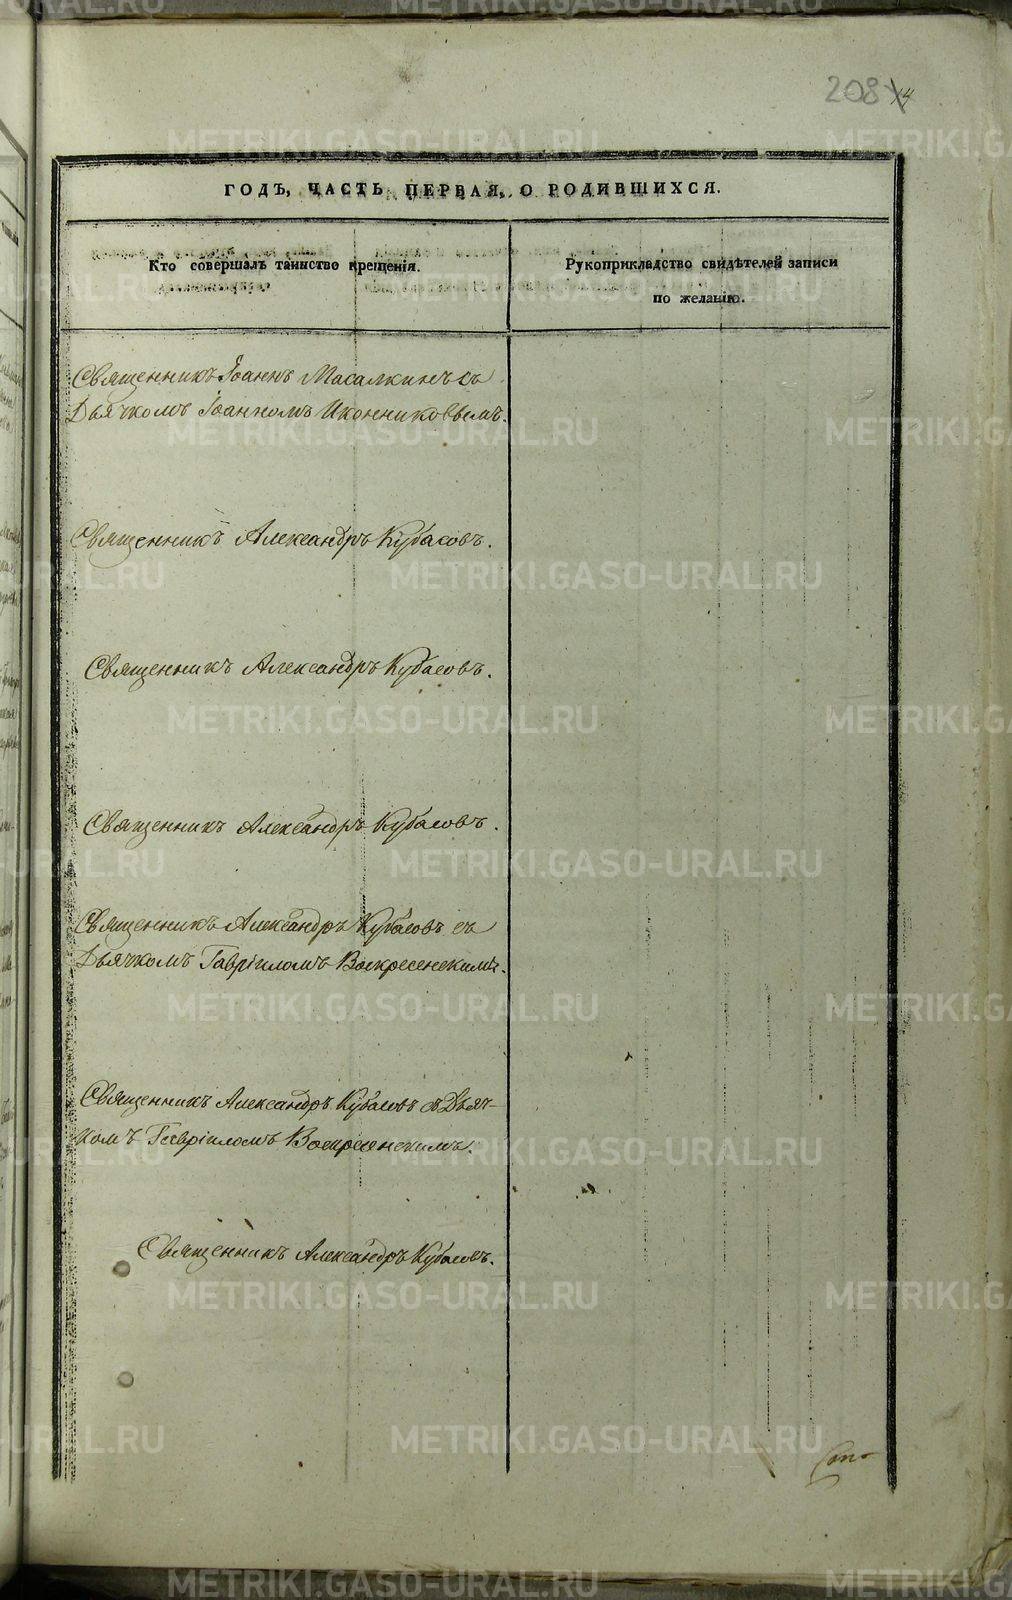 208
ГОДЪ, ЧАСТЬ ПЕРВАЯ, О РОДИВШИХСЯ.
Кто совершалъ таинство крещенія.
Рукоприкладство свидѣтелей записи
по желанію.
Священникъ Іоаннъ Масалкинъ съ
Дьячкомъ Іоанномъ Иконниковымъ.
Священникъ Александръ Кубасовъ.
Священникъ Александръ Кубасовъ.
Священникъ Александръ Кубасовъ.
Священникъ Александръ Кубасовъ съ
Дьячкомъ Гавріиломъ Воскресенскимъ.
Священникъ Александръ Кубасовъ съ Дьяч-
комъ Гавріиломъ Воскресенскимъ.
Священникъ Александръ Кубасовъ.
METRIKI.GASO-URAL.RU